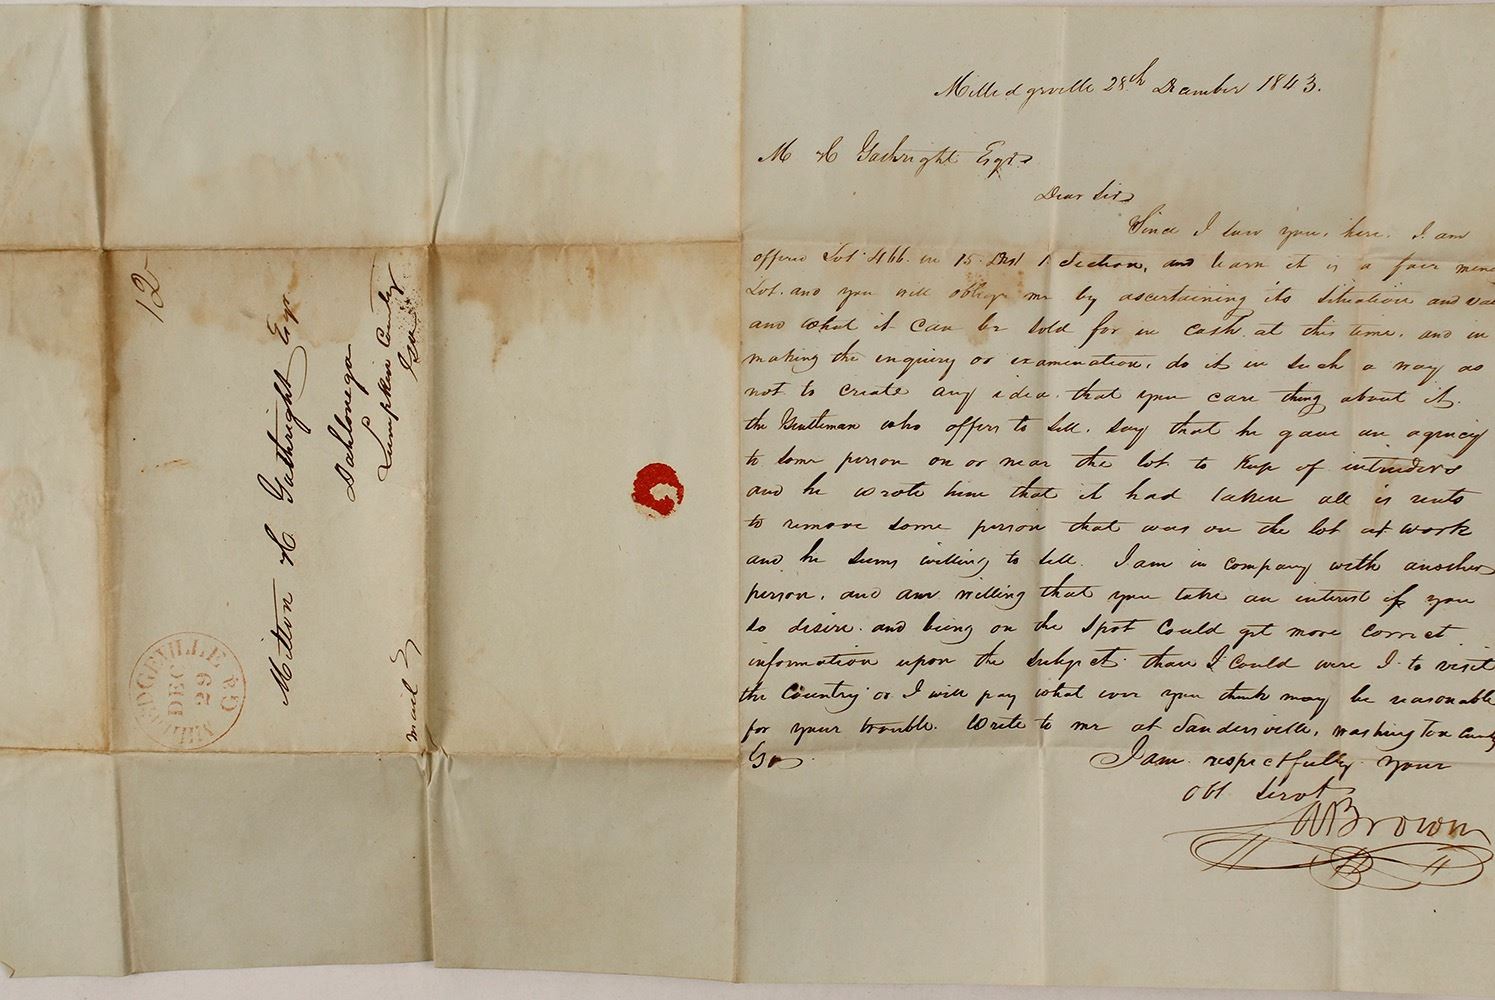 Milledgeville 28th December 1843.
M H Gathright Esqr
Dear Sir
Since I saw you, here. I am
offered Lot 466. in 15. Dist 1 Section, and learn it is a fair mine
Lot. and you will oblige me by ascertaining its situation and
and what it can be sold for in cash at this time, and in
making the enquiry or examination, do it in such a way as
not to create any idea, that you care thing about it.
the Gentleman who offers to sell, say that he gave an agency
to some person on or near the lot to keep of intruders
and he wrote him that it had taken all is rents
to remove some person that was on the lot at work
and he seems willing to sell. I am in company with another
person, and am willing that you take an interest if you
so desire. and being on the spot could get more correct
information upon the subject than I could were I to visit
the country or I will pay what ever you think may be reasonable
for your trouble. Write to me at Sandersville, Washington County
Ga
I am respectfully your
Obt Servt
Brown
12
Milton H Gathright Esqr
Dahlonega
Lumpkin County
Geo
mail
MILLEDGEVILLE Ga
DEC
29